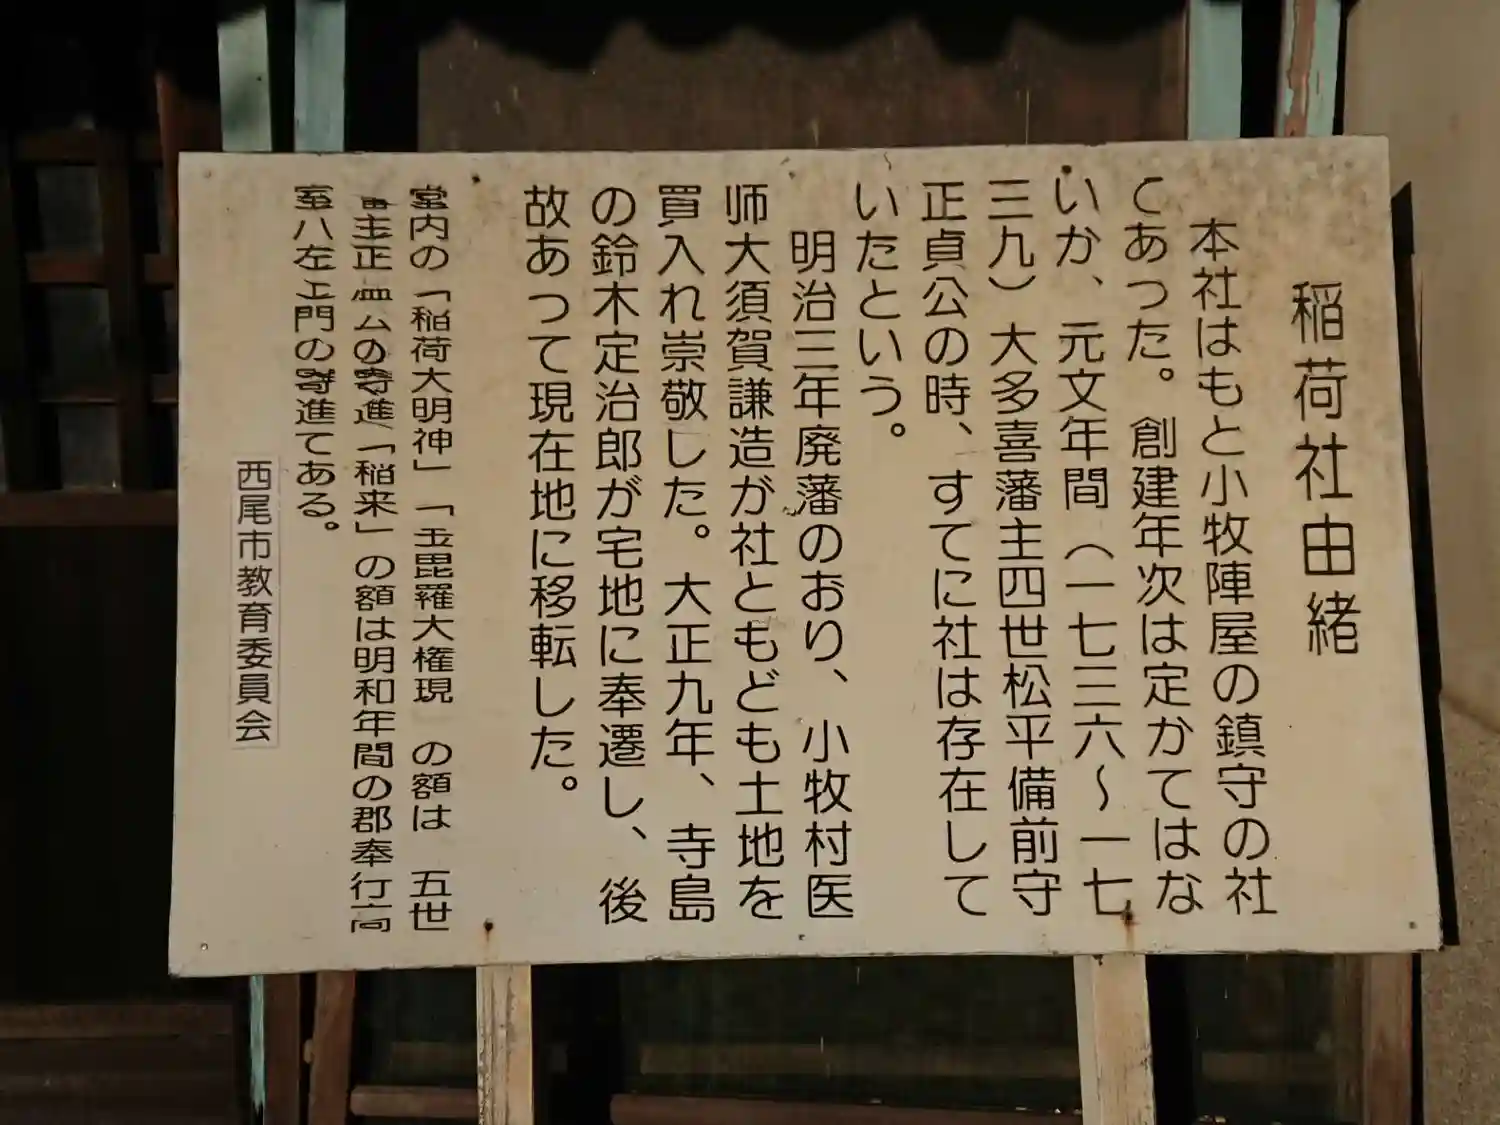 稲荷社由緒
本社はもと小牧陣屋の鎮守の社
てあった。創建年次は定かてはな
いか、元文年間（一七三六〜一七
三九）大多喜藩主四世松平備前守
正貞公の時、すてに社は存在して
いたという。
明治三年廃藩のおり、小牧村医
师大須賀謙造が社ともども土地を
買入れ崇敬した。大正九年、寺島
の鈴木定治郎が宅地に奉遷し、後
故あって現在地に移転した。
堂内の「稲荷大明神」「玉毘羅大権現」の額は 五世
主正 の寄進「稲来」の額は明和年間の郡奉行高
室八左エ門の寄進てある。
西尾市教育委員会